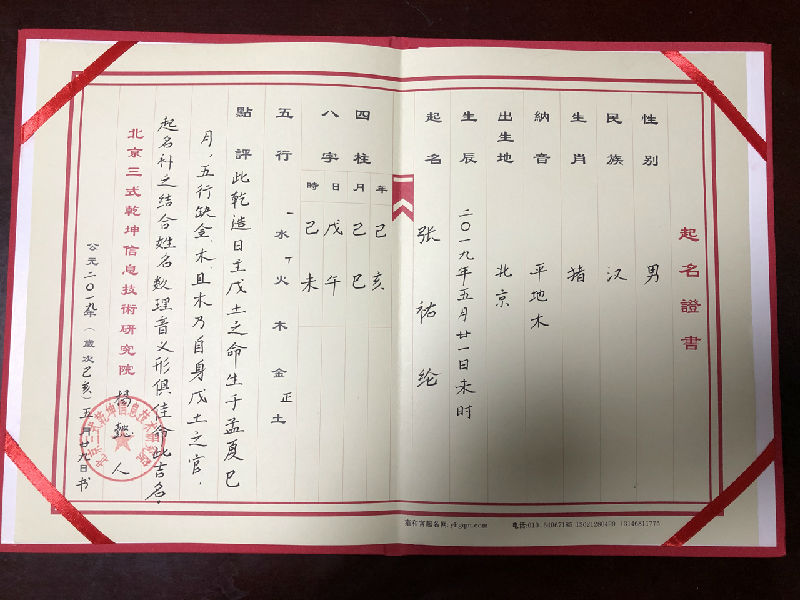 起名證書
性别 男
民族 汉
生肖 猪
納音 平地木
出生地 北京
生辰 二〇一九年五月廿一日未时
起名 张祐纶
四柱 年 月 日 時
八字 己亥 己巳 戊午 己未
五行 一水丁火 木 金 正土
點評 此乾造日主戊土之命生于孟夏巳
月，五行缺金、木，且木乃自身戊土之官，
起名补之结合姓名数理音义形俱佳命此吉名。
北京三式乾坤信息技術研究院 杨懿人
公元二〇一九年（歲次己亥）五月廿九日书
北京三式乾坤信息技术研究院